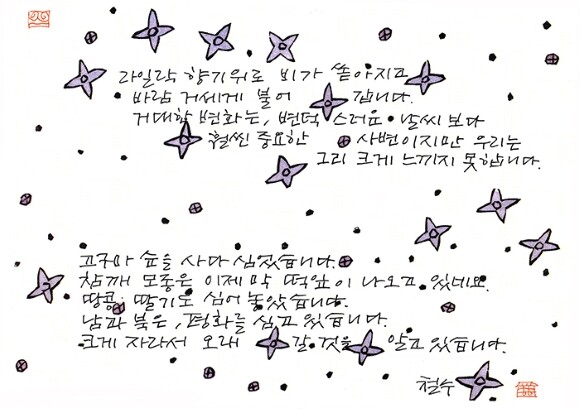 라일락 향기위로 비가 쏟아지고
바람 거세게 불어 집니다.
거대한 변화는, 변덕 스러운 날씨 보다
훨씬 중요한 사변이지만 우리는
그리 크게 느끼지 못합니다.
고구마 순을 사다 심었습니다.
참깨 모종은 이제 막 떡잎이 나오고 있네요.
땅콩, 딸기도 심어 놓았습니다.
남과 북은, 평화를 심고 있습니다.
크게 자라서 오래 갈 것을 알고 있습니다.
철수